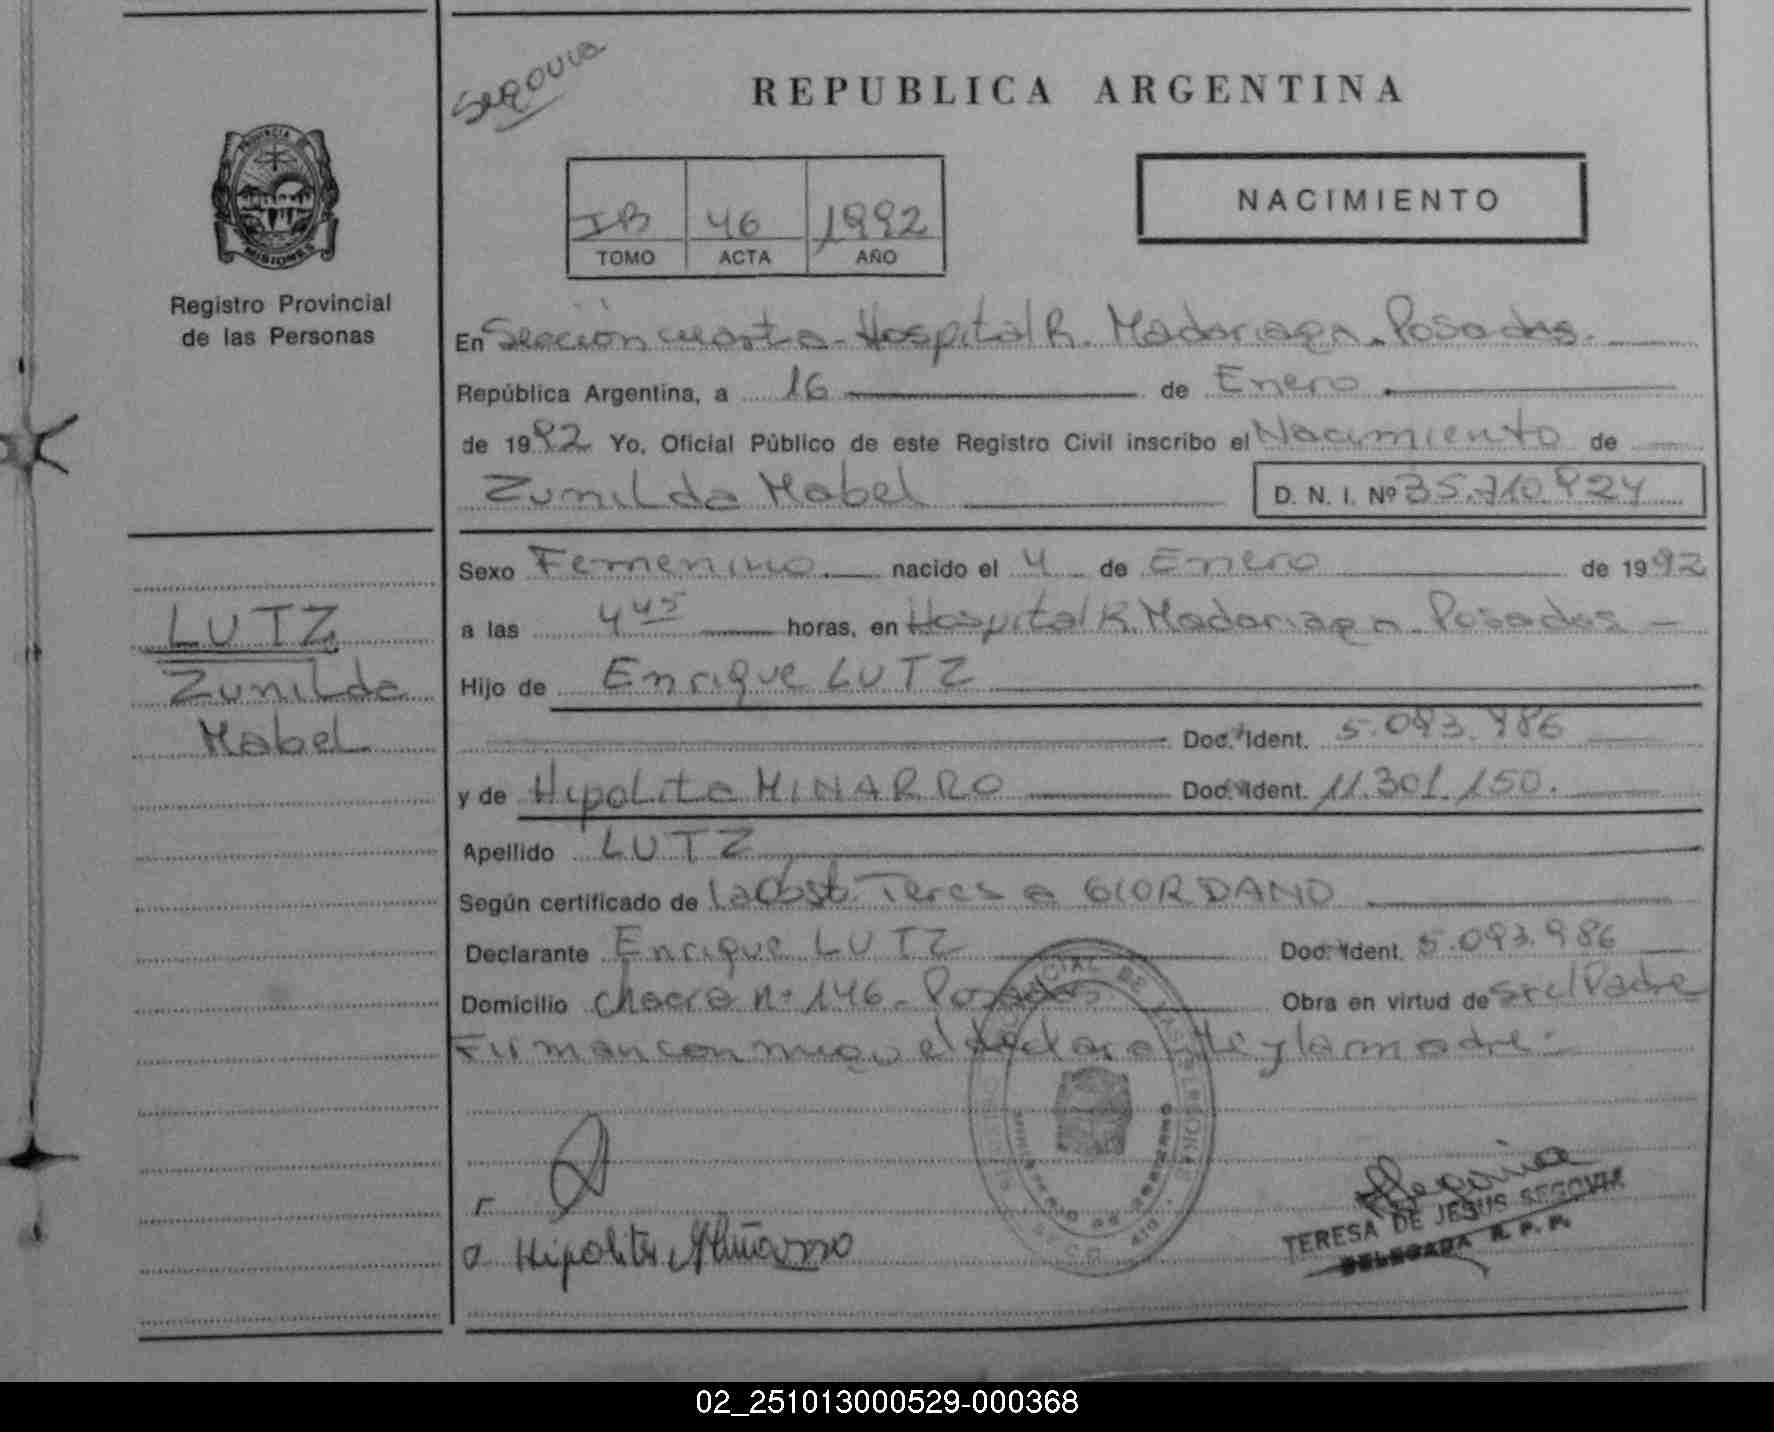 Segovia
REPUBLICA ARGENTINA
PROVINCIA DE
MISIONES
Registro Provincial
de las Personas
IB 46 1992
TOMO ACTA AÑO
NACIMIENTO
En Sección cuarta-Hospital R. Madariaga. Posadas.
República Argentina, a 16 de Enero
de 1992 Yo, Oficial Público de este Registro Civil inscribo el Nacimiento de
Zunilda Mabel D. N. I. Nº 35.710.924
Sexo Femenino nacido el 4 de Enero de 1992
a las 4 45 horas, en Hospital R. Madariaga. Posadas
Hijo de Enrique LUTZ
Doc. Ident. 5.093.986
y de Hipolita MINARRO Doc. Ident. 11.301.150.
Apellido LUTZ
Según certificado de la Obst. Teresa GIORDANO
Declarante Enrique LUTZ Doc. Ident. 5.093.986
Domicilio Chacra nº 146- Posadas Obra en virtud de ser el Padre
Firman conmigo el declarante y la madre
LUTZ
Zunilda
Mabel
Hipolita Miñarro
TERESA DE JESUS SEGOVIA
DELEGADA R. P. P.
02_251013000529-000368